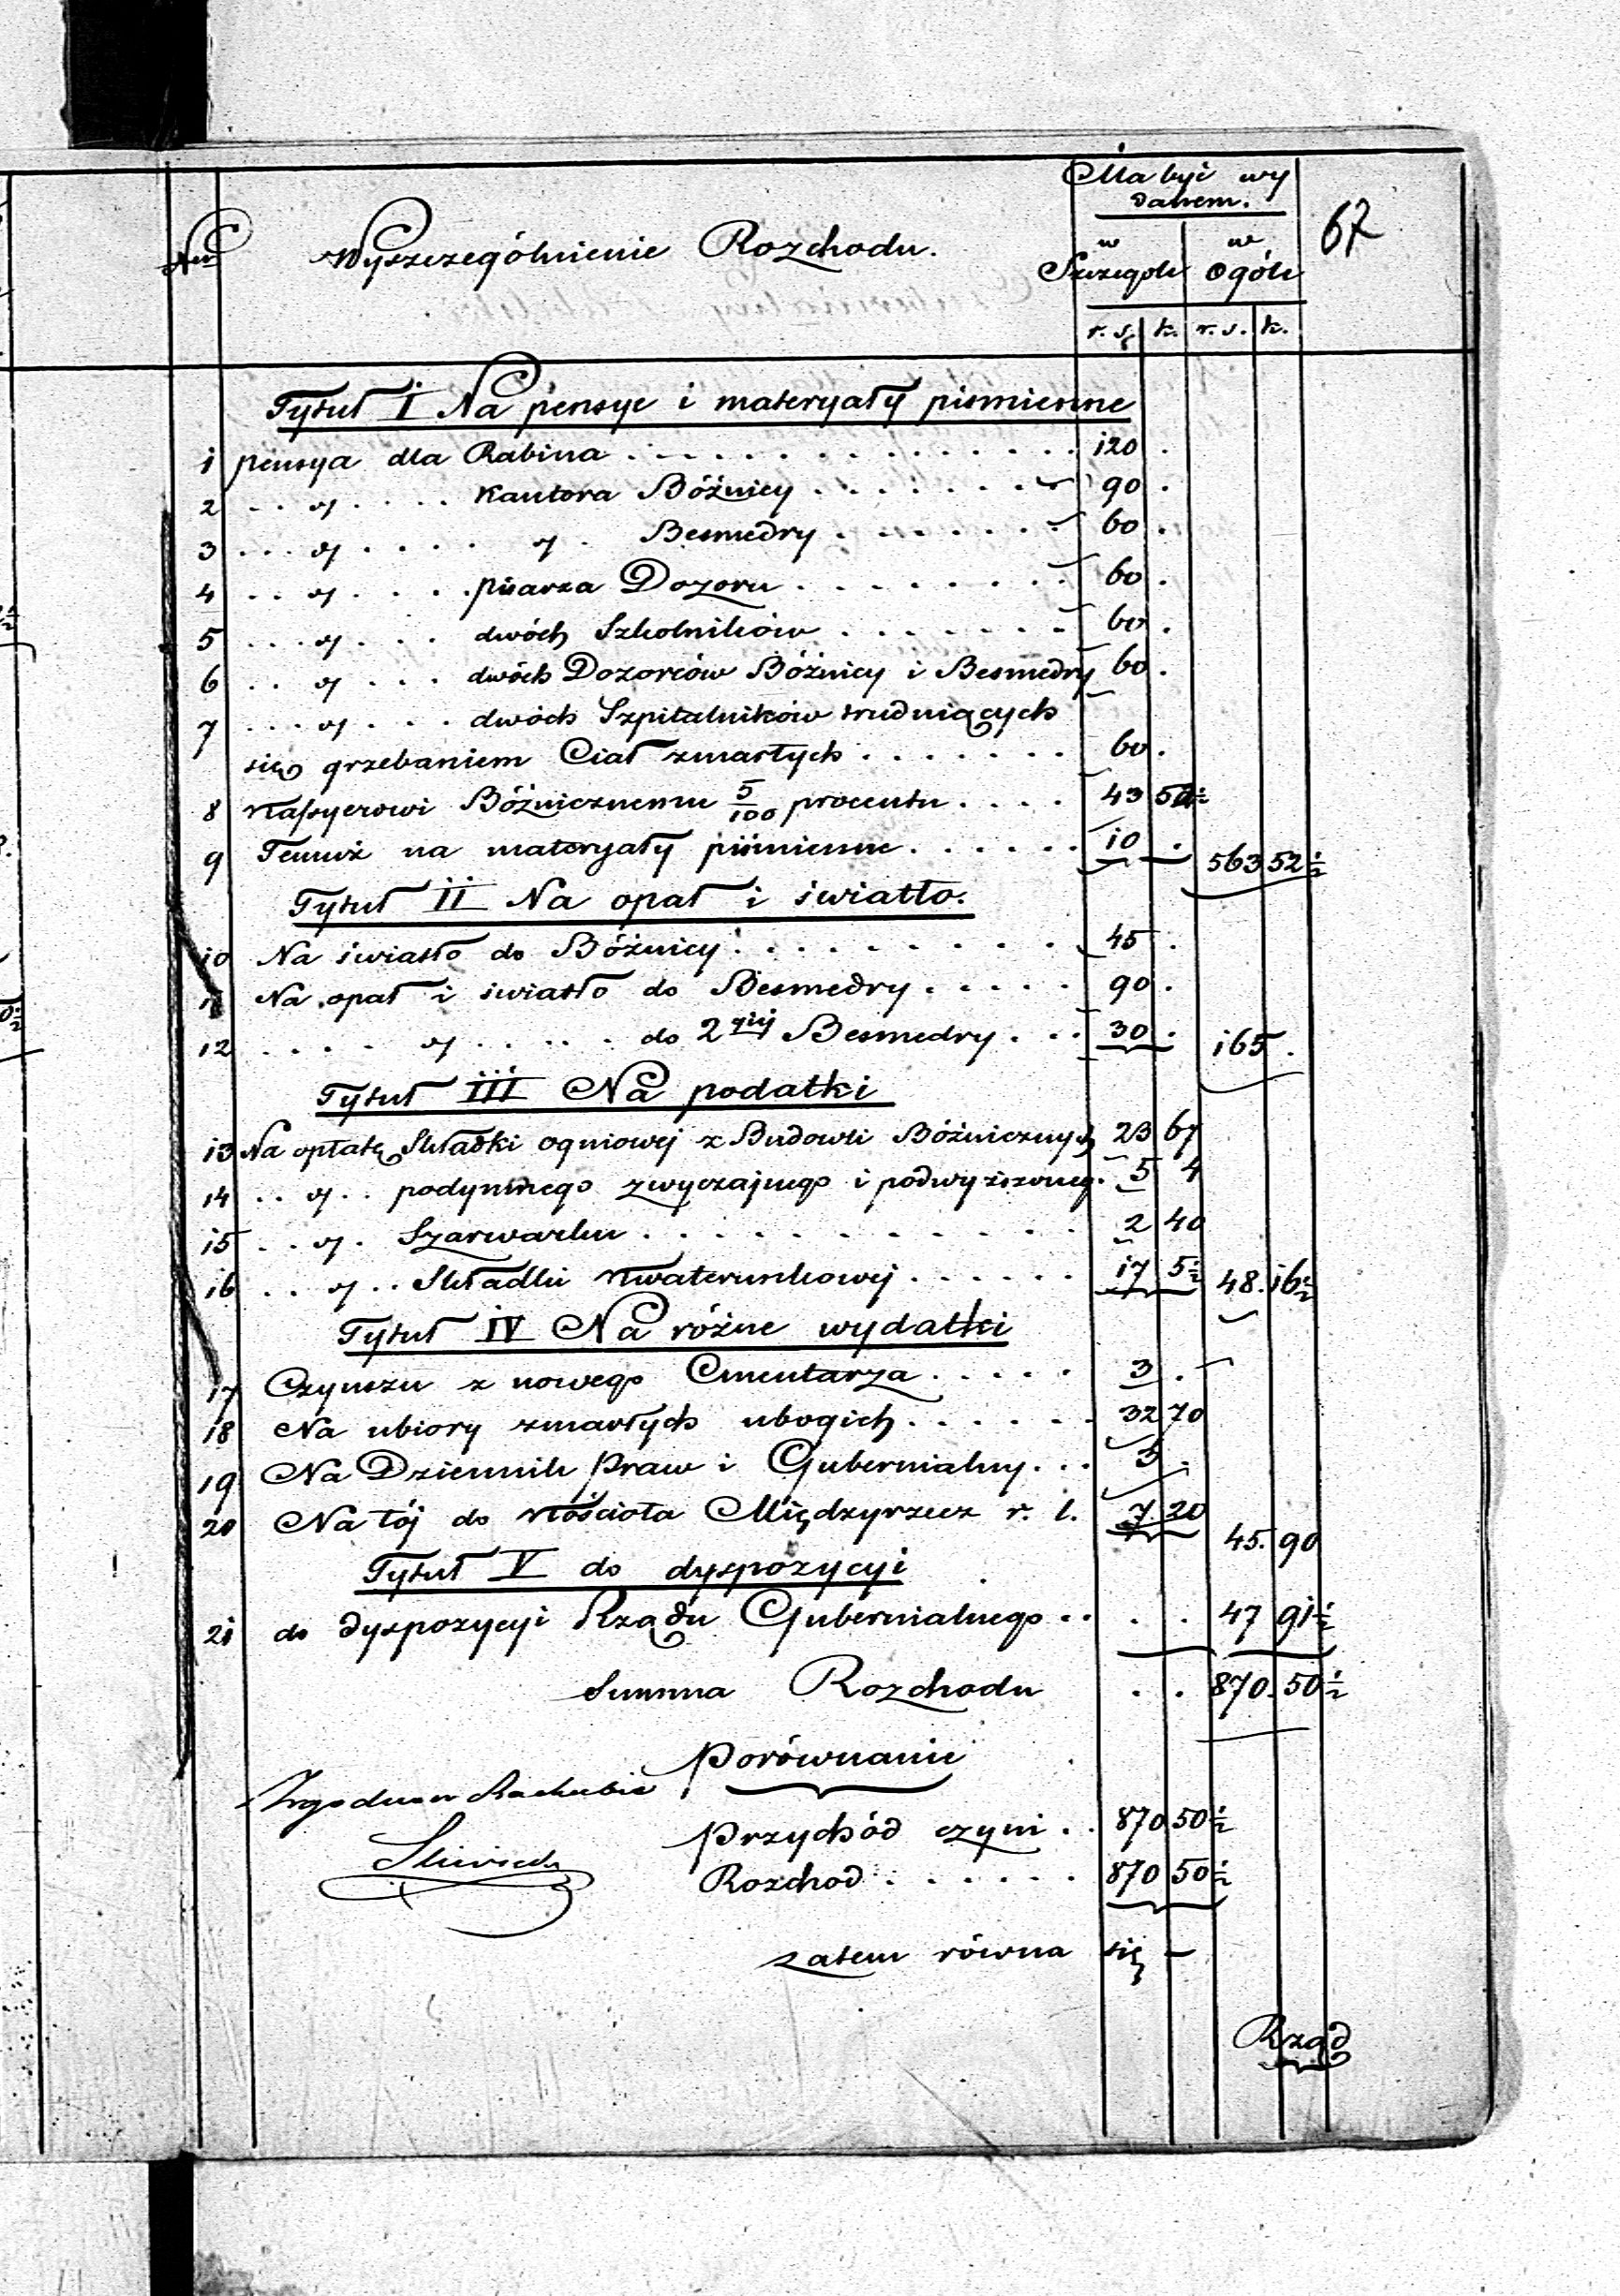 Ma być wy
danem.
67
Num
Wyszczególnienie Rozchodu.
w Szczególe
w Ogóle
r. s. k. r. s. k.
Tytuł I Na pensye i materyały piśmienne
1 pensya dla Rabina . . . 120 .
2 . . " . . . Kantora Bóżnicy . . . 90 .
3 . . . " . . . " . Besmedry . . . 60 .
4 . . " . . . pisarza Dozoru . . . 60 .
5 . . . " . . . dwóch Szkolników . . . 60 .
6 . . " . . . dwóch Dozorców Bóżnicy i Besmedry 60 .
7 . . . " . . . dwóch Szpitalników trudniących
się grzebaniem Ciał zmarłych . . . 60 .
8 Kassyerowi Bóżnicznemu 5/100 procentu . . . 43 52½
9 Temuż na materyały piśmienne . . . 10 . 563 52½
Tytuł II Na opał i światło.
10 Na światło do Bóżnicy . . . 45 .
11 Na opał i światło do Besmedry . . . 90 .
12 . . . " . . . do 2giej Besmedry . . . 30 . 165 .
Tytuł III Na podatki
13 Na opłatę Składki ogniowej z Budowli Bóżnicznych 23 67
14 . . " . . podymnego zwyczajnego i podwyższoneg. 5 4
15 . . " . Szarwarku . . . 2 40
16 . . " . . Składki Kwaterunkowej . . . 17 5½ 48. 16½
Tytuł IV Na różne wydatki
17 Czynszu z nowego Cmentarza . . . 3 .
18 Na ubiory zmarłych ubogich . . . 32 70
19 Na Dziennik Praw i Gubernialny . . . 3 .
20 Na łój do Kościoła Międzyrzecz r. l. 7 20 45. 90
Tytuł V do dyspozycyi
21 do dyspozycyi Rządu Gubernialnego . . . . 47 91½
Summa Rozchodu . . 870. 50½
Porównanie
Zgodne w Rachubie
Przychód czyni . . 870 50½
Rozchod . . . 870 50½
zatem równa się —
Rząd